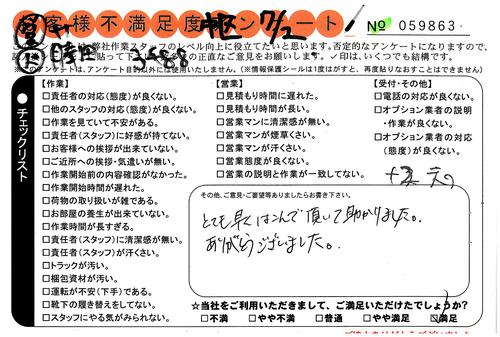 お客様不満足度アンケート
№ 059863
※このアンケートは、アンケート目的以外には使用いたしません。(※情報保護シールは1度はがすと、再度貼りなおすことはできません)
チェックリスト
【作業】
□責任者の対応(態度)が良くない。
□他のスタッフの対応(態度)が良くない。
□作業を見ていて不安がある。
□責任者(スタッフ)に好感が持てない。
□お客様への挨拶が出来ていない。
□ご近所への挨拶・気遣いが無い。
□作業開始前の内容確認がなかった。
□作業開始時間が遅れた。
□荷物の取り扱いが雑である。
□お部屋の養生が出来ていない。
□作業時間が長すぎる。
□責任者(スタッフ)に清潔感が無い。
□責任者(スタッフ)が汗くさい。
□トラックが汚い。
□梱包資材が汚い。
□運転が不安(下手)である。
□靴下の履き替えをしてない。
□スタッフにやる気がみられない。
【営業】
□見積もり時間に遅れた。
□見積もり時間が長い。
□営業マンに清潔感が無い。
□営業マンが煙草くさい。
□営業マンが汗くさい。
□営業態度が良くない。
□営業の説明と作業が一致してない。
【受付・その他】
□電話の対応が良くない。
□オプション業者の説明
・作業が良くない。
□オプション業者の対応
(態度)が良くない。
その他、ご意見・ご要望等ありましたらお書き下さい。
とても早くはこんで頂いて助かりました。
ありがとうございました。
☆当社をご利用いただきまして、ご満足いただけたでしょうか?
□不満 □やや不満 □普通 □やや満足 □満足